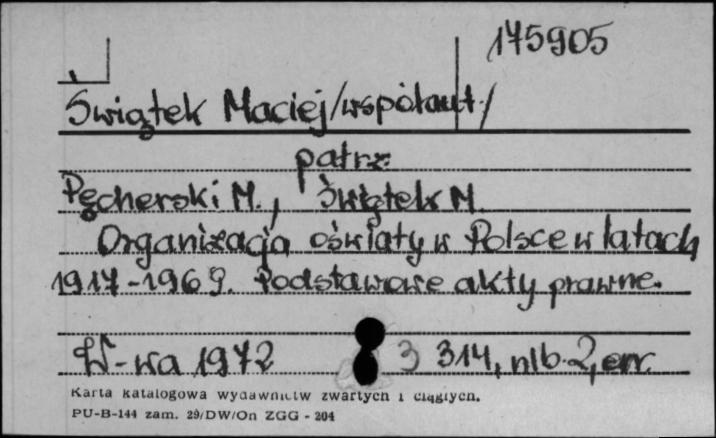 175905
Świątek Maciej/współaut./
patrz
Pęcherski M., Świątek M.
Organizacja oświaty w Polsce w latach
1917-1969. Podstawowe akty prawne.
W-wa 1972 3 314, nlb. 2, err.
Karta katalogowa wydawnictw zwartych i ciągłych.
PU-B-144 zam. 29/DW/On ZGG - 204